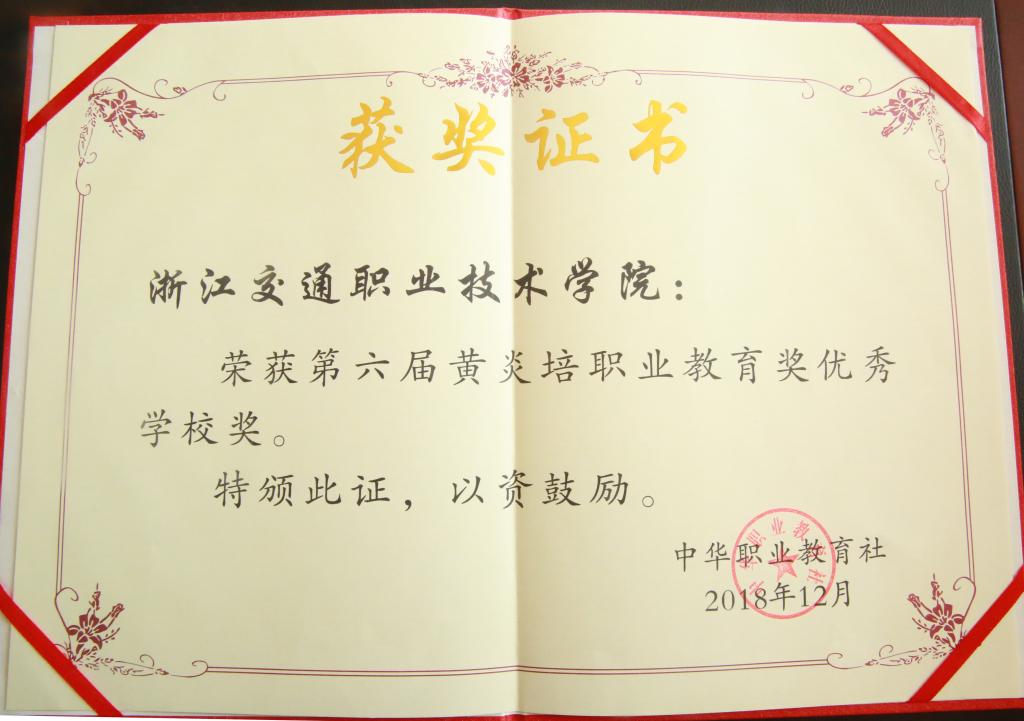 获奖证书
浙江交通职业技术学院：
荣获第六届黄炎培职业教育奖优秀
学校奖。
特颁此证，以资鼓励。
中华职业教育社
2018年12月
中华职业教育社